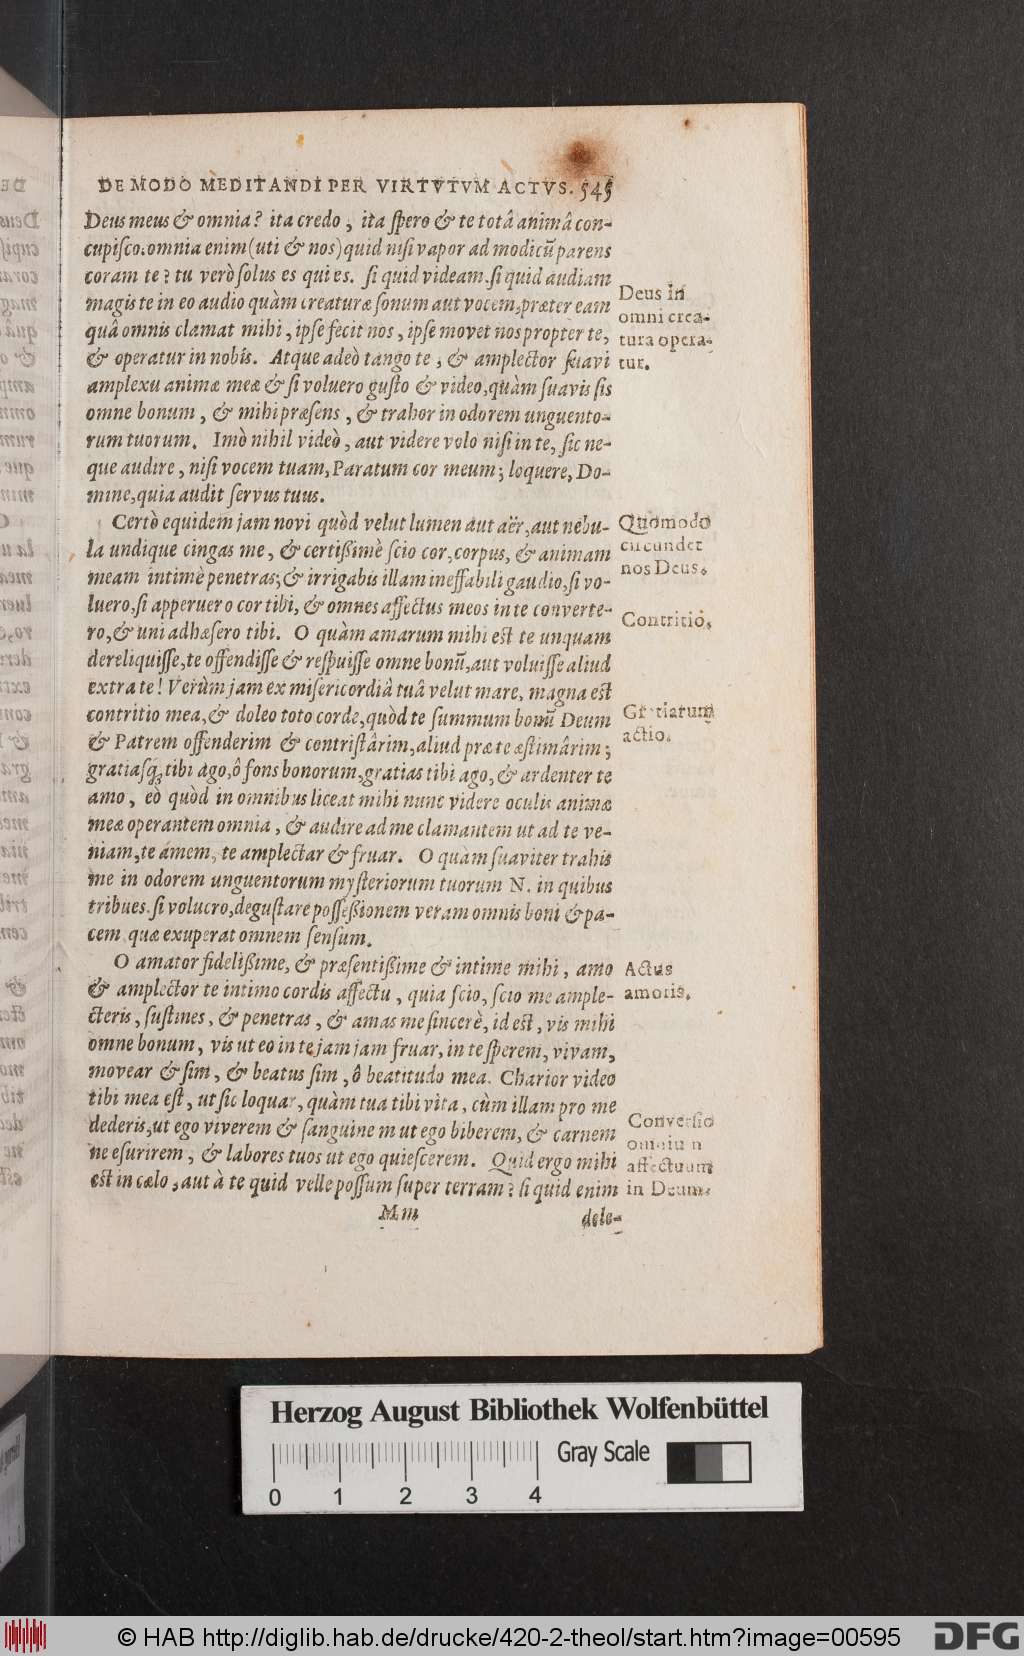 DE MODO MEDITANDI PER VIRTVTVM ACTVS. 545
Deus meus & omnia? ita credo, ita spero & te totâ animâ con-
cupisco: omnia enim (uti & nos) quid nisi vapor ad modicū parens
coram te? tu verò solus es qui es. si quid videam. si quid audiam
magis te in eo audio quàm creaturæ sonum aut vocem, præter eam
quâ omnis clamat mihi, ipse fecit nos, ipse movet nos propter te,
& operatur in nobis. Atque adeò tango te, & amplector suavi
amplexu animæ meæ & si voluero gusto & video, quàm suavis sis
omne bonum, & mihi præsens, & trahor in odorem unguento-
rum tuorum. Imò nihil videò, aut videre volo nisi in te, sic ne-
que audire, nisi vocem tuam, Paratum cor meum; loquere, Do-
mine, quia audit servus tuus.
Deus in
omni crea-
tura opera-
tur.
Certò equidem jam novi quòd velut lumen aut aër, aut nebu-
la undique cingas me, & certißimè scio cor, corpus, & animam
meam intimè penetras; & irrigabis illam ineffabili gaudio, si vo-
luero, si apperuero cor tibi, & omnes affectus meos in te converte-
ro, & uni adhæsero tibi. O quàm amarum mihi est te unquam
dereliquisse, te offendisse & respuisse omne bonū, aut voluisse aliud
extra te! Verùm jam ex misericordiâ tuâ velut mare, magna est
contritio mea, & doleo toto corde, quòd te summum bonū Deum
& Patrem offenderim & contristârim, aliud præ te æstimârim;
gratiasq́ tibi ago, ô fons bonorum, gratias tibi ago, & ardenter te
amo, eò quòd in omnibus liceat mihi nunc videre oculis animæ
meæ operantem omnia, & audire ad me clamantem ut ad te ve-
niam, te amem, te amplectar & fruar. O quàm suaviter trahis
me in odorem unguentorum mysteriorum tuorum N. in quibus
tribues. si volucro, degustare possessionem veram omnis boni & pa-
cem quæ exuperat omnem sensum.
Quomodo
circundet
nos Deus.
Contritio.
Gratiarum
actio.
O amator fidelißime, & præsentißime & intime mihi, amo
& amplector te intimo cordis affectu, quia scio, scio me ample-
cteris, sustines, & penetras, & amas me sincerè, id est, vis mihi
omne bonum, vis ut eo in te jam jam fruar, in te sperem, vivam,
movear & sim, & beatus sim, ô beatitudo mea. Charior video
tibi mea est, ut sic loquar, quàm tua tibi vita, cùm illam pro me
dederis, ut ego viverem & sanguinem ut ego biberem, & carnem
ne esurirem, & labores tuos ut ego quiescerem. Quid ergo mihi
est in cælo, aut à te quid velle possum super terram? si quid enim
Actus
amoris.
Conversio
omnium
affectuum
in Deum.
Mm
dele-
Herzog August Bibliothek Wolfenbüttel
Gray Scale
0 1 2 3 4
© HAB http://diglib.hab.de/drucke/420-2-theol/start.htm?image=00595
DFG